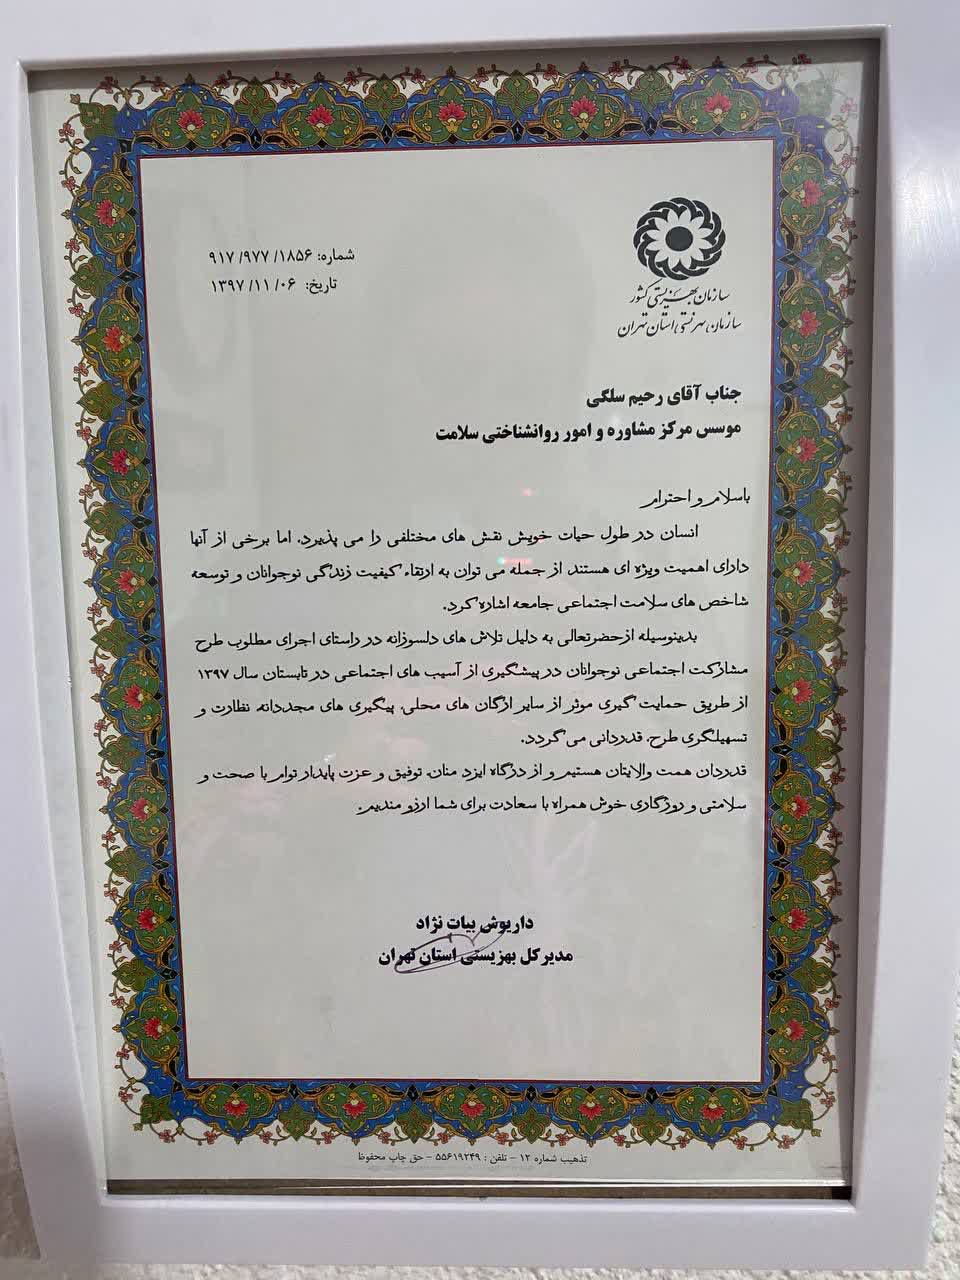 سازمان بهزیستی کشور
سازمان بهزیستی استان تهران
شماره: ۹۱۷/ ۹۷۷/ ۱۸۵۶
تاریخ: ۱۳۹۷/ ۱۱/ ۰۶
جناب آقای رحیم سلگی
موسس مرکز مشاوره و امور روانشناختی سلامت
باسلام و احترام
انسان در طول حیات خویش نقش های مختلفی را می پذیرد. اما برخی از آنها
دارای اهمیت ویژه ای هستند از جمله می توان به ارتقاء کیفیت زندگی نوجوانان و توسعه
شاخص های سلامت اجتماعی جامعه اشاره کرد.
بدینوسیله ازحضرتعالی به دلیل تلاش های دلسوزانه در راستای اجرای مطلوب طرح
مشارکت اجتماعی نوجوانان در پیشگیری از آسیب های اجتماعی در تابستان سال ۱۳۹۷
از طریق حمایت گیری موثر از سایر ارگان های محلی، پیگیری های مجددانه، نظارت و
تسهیلگری طرح، قدردانی می گردد.
قدردان همت والایتان هستیم و از درگاه ایزد منان، توفیق و عزت پایدار توام با صحت و
سلامتی و روزگاری خوش همراه با سعادت برای شما ارزو مندیم.
داریوش بیات نژاد
مدیرکل بهزیستی استان تهران
تذهیب شماره ۱۲ – تلفن : ۵۵۶۱۹۲۴۹ – حق چاپ محفوظ